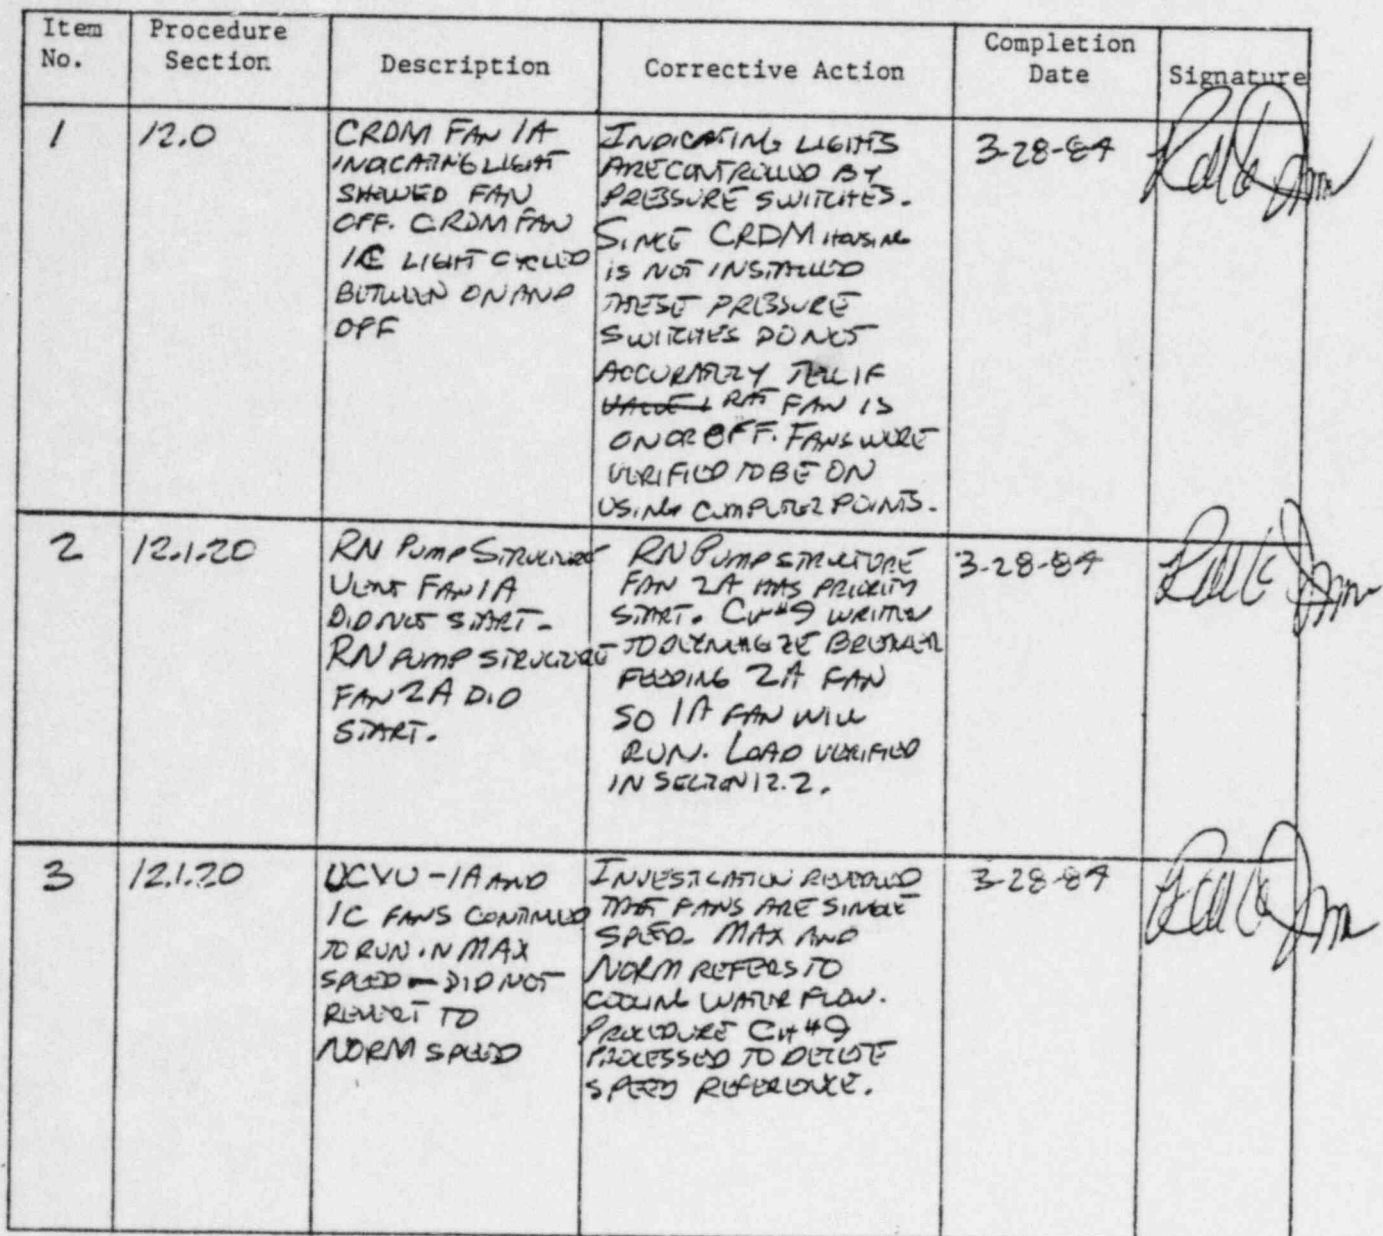 Item No.
Procedure Section
Description
Corrective Action
Completion Date
Signature
1
12.0
CRDM FAN 1A
INDICATING LIGHT
SHOWED FAN
OFF. CRDM FAN
1C LIGHT CYCLED
BETWEEN ON AND
OFF
INDICATING LIGHTS
ARE CONTROLLED BY
PRESSURE SWITCHES.
SINCE CRDM HOUSING
IS NOT INSTALLED
THESE PRESSURE
SWITCHES DO NOT
ACCURATELY TELL IF
FAN IS
ON OR OFF. FANS WERE
VERIFIED TO BE ON
USING COMPUTER POINTS.
3-28-84
2
12.1.20
RN PUMP STRUCTURE
VENT FAN 1A
DID NOT START.
RN PUMP STRUCTURE
FAN 2A DID
START.
RN PUMP STRUCTURE
FAN 2A HAS PRIORITY
START. CH#9 WRITTEN
TO DEENERGIZE BREAKER
FEEDING 2A FAN
SO 1A FAN WILL
RUN. LOAD VERIFIED
IN SECTION 12.2.
3-28-84
3
12.1.20
UCVU-1A AND
1C FANS CONTINUED
TO RUN IN MAX
SPEED - DID NOT
REVERT TO
NORM SPEED
INVESTIGATION REVEALED
THAT FANS ARE SINGLE
SPEED. MAX AND
NORM REFERS TO
COOLING WATER FLOW.
PROCEDURE CH#9
PROCESSED TO DELETE
SPEED REFERENCE.
3-28-84